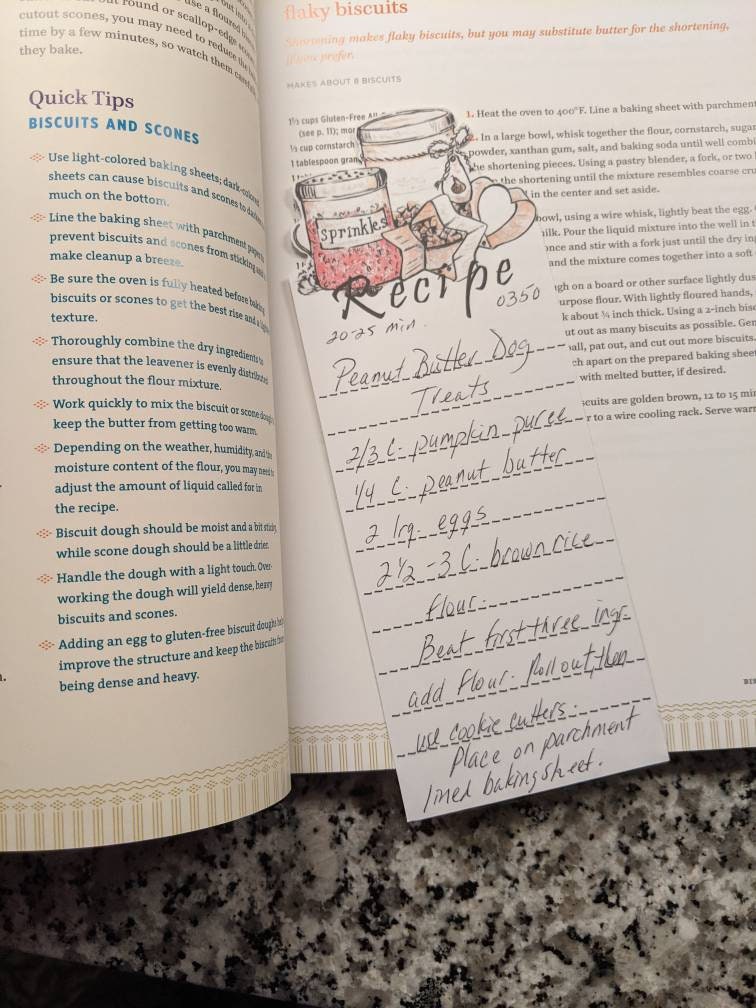 cutout scones, you may need to reduce the
time by a few minutes, so watch them carefully
they bake.
Quick Tips
BISCUITS AND SCONES
Use light-colored baking sheets; dark-colored
sheets can cause biscuits and scones to darken
much on the bottom.
Line the baking sheet with parchment paper
prevent biscuits and scones from sticking
make cleanup a breeze.
Be sure the oven is fully heated before baking
biscuits or scones to get the best rise and a
texture.
Thoroughly combine the dry ingredients to
ensure that the leavener is evenly distributed
throughout the flour mixture.
Work quickly to mix the biscuit or scone dough
keep the butter from getting too warm.
Depending on the weather, humidity, and the
moisture content of the flour, you may need to
adjust the amount of liquid called for in
the recipe.
Biscuit dough should be moist and a bit sticky,
while scone dough should be a little drier.
Handle the dough with a light touch. Over-
working the dough will yield dense, heavy
biscuits and scones.
Adding an egg to gluten-free biscuit doughs
improve the structure and keep the biscuits from
being dense and heavy.
flaky biscuits
Shortening makes flaky biscuits, but you may substitute butter for the shortening,
if you prefer.
MAKES ABOUT 8 BISCUITS
1½ cups Gluten-Free
(see p. 11);
⅓ cup cornstarch
1 tablespoon
1. Heat the oven to 400°F. Line a baking sheet with parchment
2. In a large bowl, whisk together the flour, cornstarch, sugar
powder, xanthan gum, salt, and baking soda until well
the shortening pieces. Using a pastry blender, a fork, or two
the shortening until the mixture resembles coarse
in the center and set aside.
bowl, using a wire whisk, lightly beat the egg.
Pour the liquid mixture into the well in
and stir with a fork just until the dry
and the mixture comes together into a soft
on a board or other surface lightly
flour. With lightly floured hands,
about ¾ inch thick. Using a 2-inch
out as many biscuits as possible.
pat out, and cut out more biscuits.
apart on the prepared baking sheet
with melted butter, if desired.
are golden brown, 12 to 15
to a wire cooling rack. Serve
sprinkles
Recipe
20-25 min.
0350
Peanut Butter Dog
Treats
2/3 C. pumpkin puree
1/4 C. peanut butter
2 lrg. eggs
2 1/2 - 3 C. brown rice
flour.
Beat first three ingr.
add flour. Roll out, then
use cookie cutters.
Place on parchment
lined baking sheet.